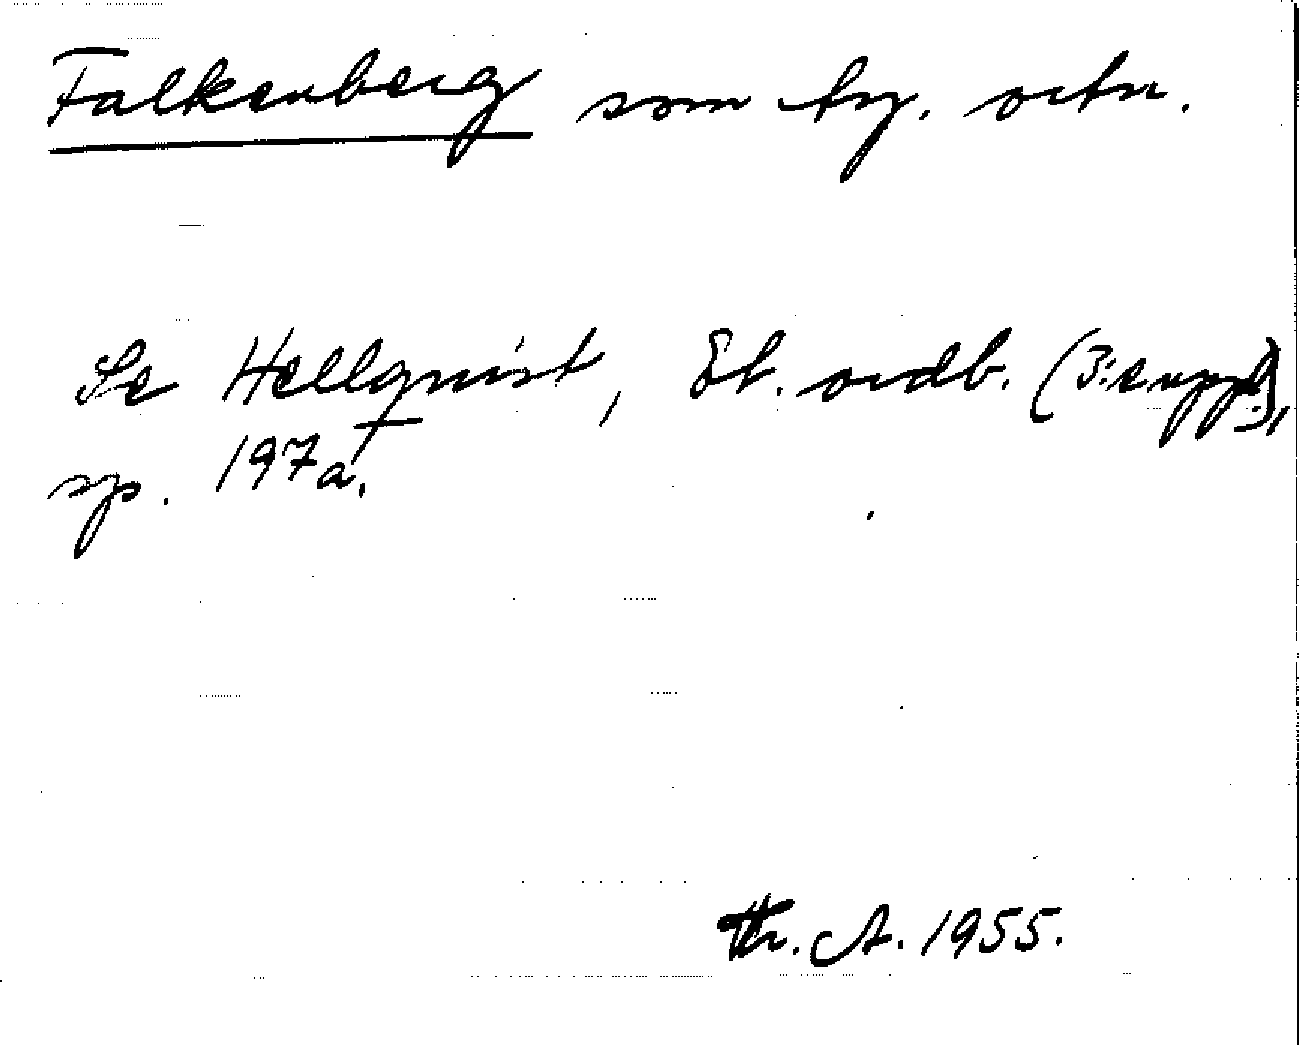 Falkenberg som ty. ortn.
Se Hellquist, Et. ordb. (3:e uppl.),
sp. 197a.
Th. A. 1955.